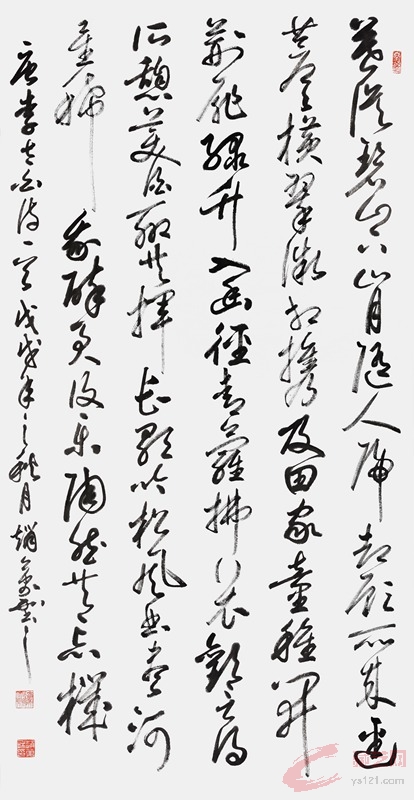 暮從碧山下山月隨人歸却顧所來徑
蒼蒼橫翠微相攜及田家童稚開
荊扉綠竹入幽徑青蘿拂行衣歡言得
所憩美酒聊共揮長歌吟松風曲盡河
星稀我醉君復樂陶然共忘機
唐李太白詩一首戊戌年之秋月趙
ys121.com